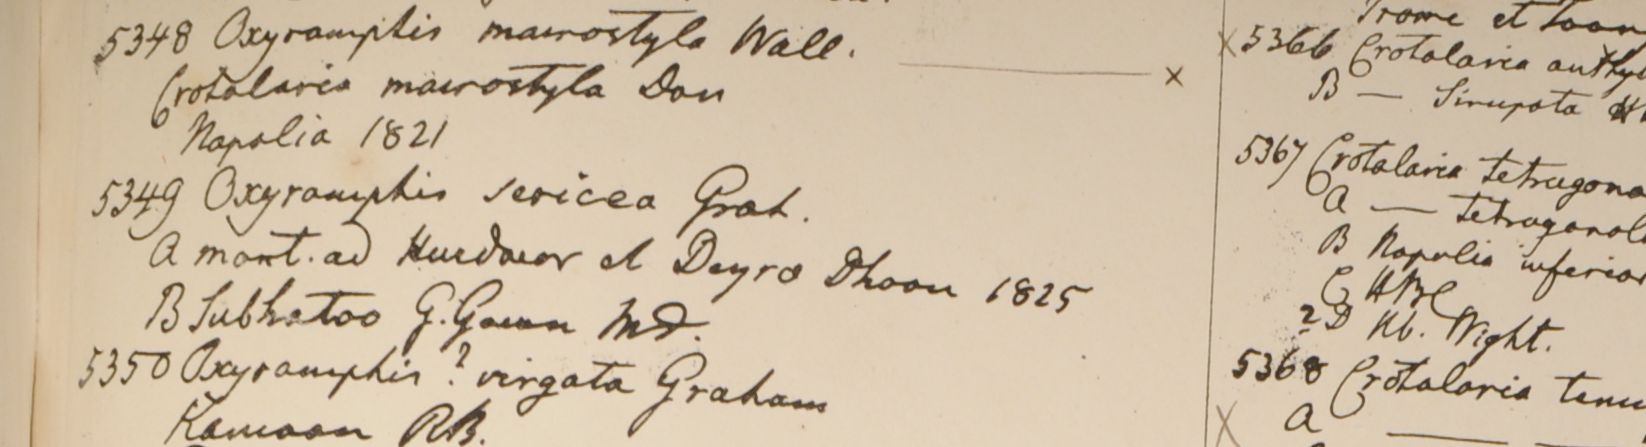 5348 Oxyramphis macrostyla Wall. ——— ×
Crotalaria macrostyla Don
Napalia 1821
5349 Oxyramphis sericea Grah.
A mont. ad Hurdwar et Deyra Dhoon 1825
B Subhatoo G. Govan Md.
5350 Oxyramphis? virgata Graham
Kamaon R.B.
et
× 5366 Crotalaria anthyl
B —
5367 Crotalaria tetragona
A — tetragonol
B Napalia inferior
C HBC
? D Hb. Wight.
5368 Crotalaria tenu
× A —